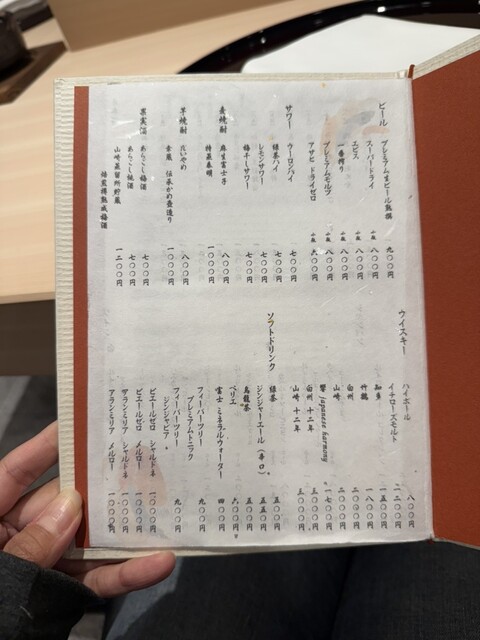 ビール
プレミアム生ビール熟撰 九〇〇円
スーパードライ 小瓶 八〇〇円
エビス 小瓶 八〇〇円
一番搾り 小瓶 八〇〇円
プレミアムモルツ 小瓶 八〇〇円
アサヒ ドライゼロ 小瓶 六〇〇円
サワー
ウーロンハイ 七〇〇円
緑茶ハイ 七〇〇円
レモンサワー 七〇〇円
梅干しサワー 七〇〇円
麦焼酎
麻生富士子 八〇〇円
特蒸泰明 一〇〇〇円
芋焼酎
だいやめ 八〇〇円
金峰 伝承かめ壺造り 一〇〇〇円
果実酒
あらごし梅酒 七〇〇円
あらごし桃酒 七〇〇円
山崎蒸留所貯蔵
焙煎樽熟成梅酒 一二〇〇円
ウイスキー
ハイボール 八〇〇円
イチローズモルト 二二〇〇円
知多 一五〇〇円
竹鶴 一八〇〇円
白州 二〇〇〇円
山崎 二〇〇〇円
響 japanese harmony 一七〇〇円
白州 十二年 三〇〇〇円
山崎 十二年 三〇〇〇円
ソフトドリンク
緑茶 五〇〇円
ジンジャーエール(辛口) 五五〇円
烏龍茶 五〇〇円
ペリエ 六〇〇円
富士 ミネラルウォーター 四〇〇円
フィーバーツリー
プレミアムトニック 九〇〇円
フィーバーツリー
ジンジャビア 九〇〇円
ピエールゼロ シャルドネ 一〇〇〇円
ピエールゼロ メルロー 一〇〇〇円
アランミリア シャルドネ 一〇〇〇円
アランミリア メルロー 一〇〇〇円